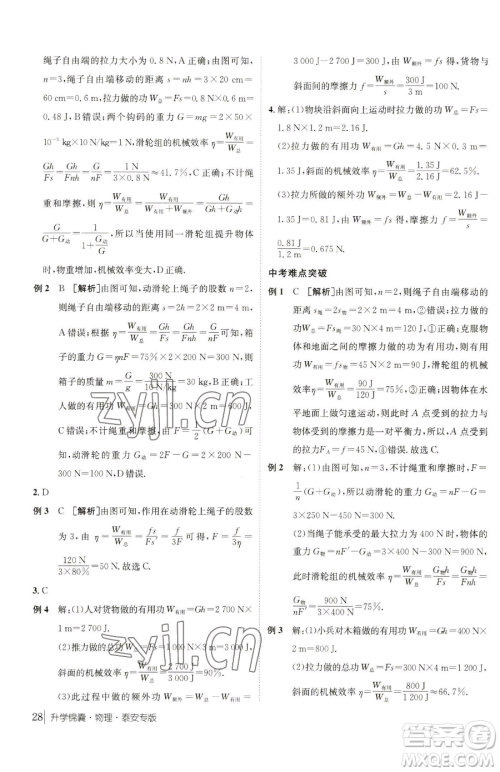 绳子自由端的拉力大小为 0.8 N,A 正确;由图可知,
绳子自由端移动的距离 s=3h=3×20 cm=
60 cm=0.6 m,B 正确;拉力做的功 W总=Fs=0.8 N×0.6 m=
0.48 J,B 正确;两个钩码的重力 G=2×50×
10⁻³ kg×10 N/kg=1 N,滑轮组的机械效率 η=W有用/W总=
Gh/Fs=Gh/Fnh=G/nF=1 N/(3×0.8 N)≈41.7%,C 正确;不计绳
重和摩擦,则 η=W有用/W总=W有用/(W有用+W额外)=Gh/(Gh+G动h)=
G/(G+G动)=1/(1+G动/G),由此可知,使用同一滑轮组提升物体
时,物重增加,机械效率变大,D 错误.
例 2 B [解析]由图可知,动滑轮上绳子的股数 n=2,
则绳子自由端移动的距离 s=2h=2×2 m=4 m,
A 错误;根据 η=W有用/W总=Gh/Fs=Gh/Fnh=G/nF可知,箱子的
重力 G=ηnF=75%×2×200 N=300 N,则
箱子的质量 m=G/g=300 N/(10 N/kg)=30 kg,B 正确;
工人做的有用功 W有用=Gh=300 N×2 m=600 J,
C 错误;不计绳重和摩擦,由 F=1/2(G+G动)可知,
动滑轮的重力 G动=2F-G=2×200 N-300 N=
100 N,D 错误.
2. D
例 3 C [解析]由图可知,作用在动滑轮上绳子的股数
为 3,由 η=W有用/W总=fs/Fs′=fs/F3s=f/3F可得,F=f/3η=
120 N/(3×80%)=50 N.故选 C.
3. C
例 4 解:(1)人对货物做的有用功 W有用=Gh=2 700 N×
1 m=2 700 J.
(2)推力做的总功 W总=Fs=1 000 N×3 m=3 000 J,
斜面的机械效率 η=W有用/W总=2 700 J/3 000 J=90%.
(3)此过程中做的额外功 W额外=W总-W有用=
3 000 J-2 700 J=300 J,由 W额外=fs 可得,货物与
斜面间的摩擦力 f=W额外/s=300 J/3 m=100 N.
4. 解:(1)物块沿斜面向上运动时拉力做的功 W总=Fs=
1.8 N×1.2 m=2.16 J.
(2)拉力做的有用功 W有用=Gh=4.5 N×0.3 m=
1.35 J,斜面的机械效率 η=W有用/W总=1.35 J/2.16 J=62.5%.
(3)拉力所做的额外功 W额外=W总-W有用=2.16 J-
1.35 J=0.81 J,斜面对物块的摩擦力 f=W额外/s=
0.81 J/1.2 m=0.675 N.
中考难点突破
例 1 C [解析]由图可知,n=2,则绳子自由端移动的距
离 s=2s物=2×2 m=4 m,①错误;拉力做的功
W总=Fs=30 N×4 m=120 J,②正确;克服物体
与水平面之间的摩擦力做的功为有用功,则有用
功 W有用=fs物=45 N×2 m=90 J,滑轮组的机械
效率 η=W有用/W总=90 J/120 J=75%,③正确;因物体在水
平地面上做匀速运动,此时 A 点受到的拉力与
物体受到的摩擦力是一对平衡力,所以 A 点受到
的拉力 FA=f=45 N,④正确.
例 2 解:(1)由图可知,n=3,不计绳重和摩擦,由 F=
1/n(G+G动)可得,动滑轮的重力 G动=nF-G=
3×400 N-1 000 N=200 N.
(2)当绳子能承受的最大拉力为 400 N 时,G物=
nF′-G动=3×400 N-300 N=900 N,
此时滑轮组的机械效率 η=W有用/W总=G物h/Fs=G物h/Fnh=
G物/nF=900 N/(3×400 N)=75%.
例 3 解:(1)小兵对木箱做的有用功 W有用=Gh=450 N×
2 m=900 J.
(2)推力做的总功 W总=Fs=300 N×4 m=1 200 J,
斜面的机械效率 η=W有用/W总=900 J/1 200 J=75%.
28 升学锦囊·物理·泰安专版
zyjl.cn
zyjl.cn
答案圈
MXQE.COM